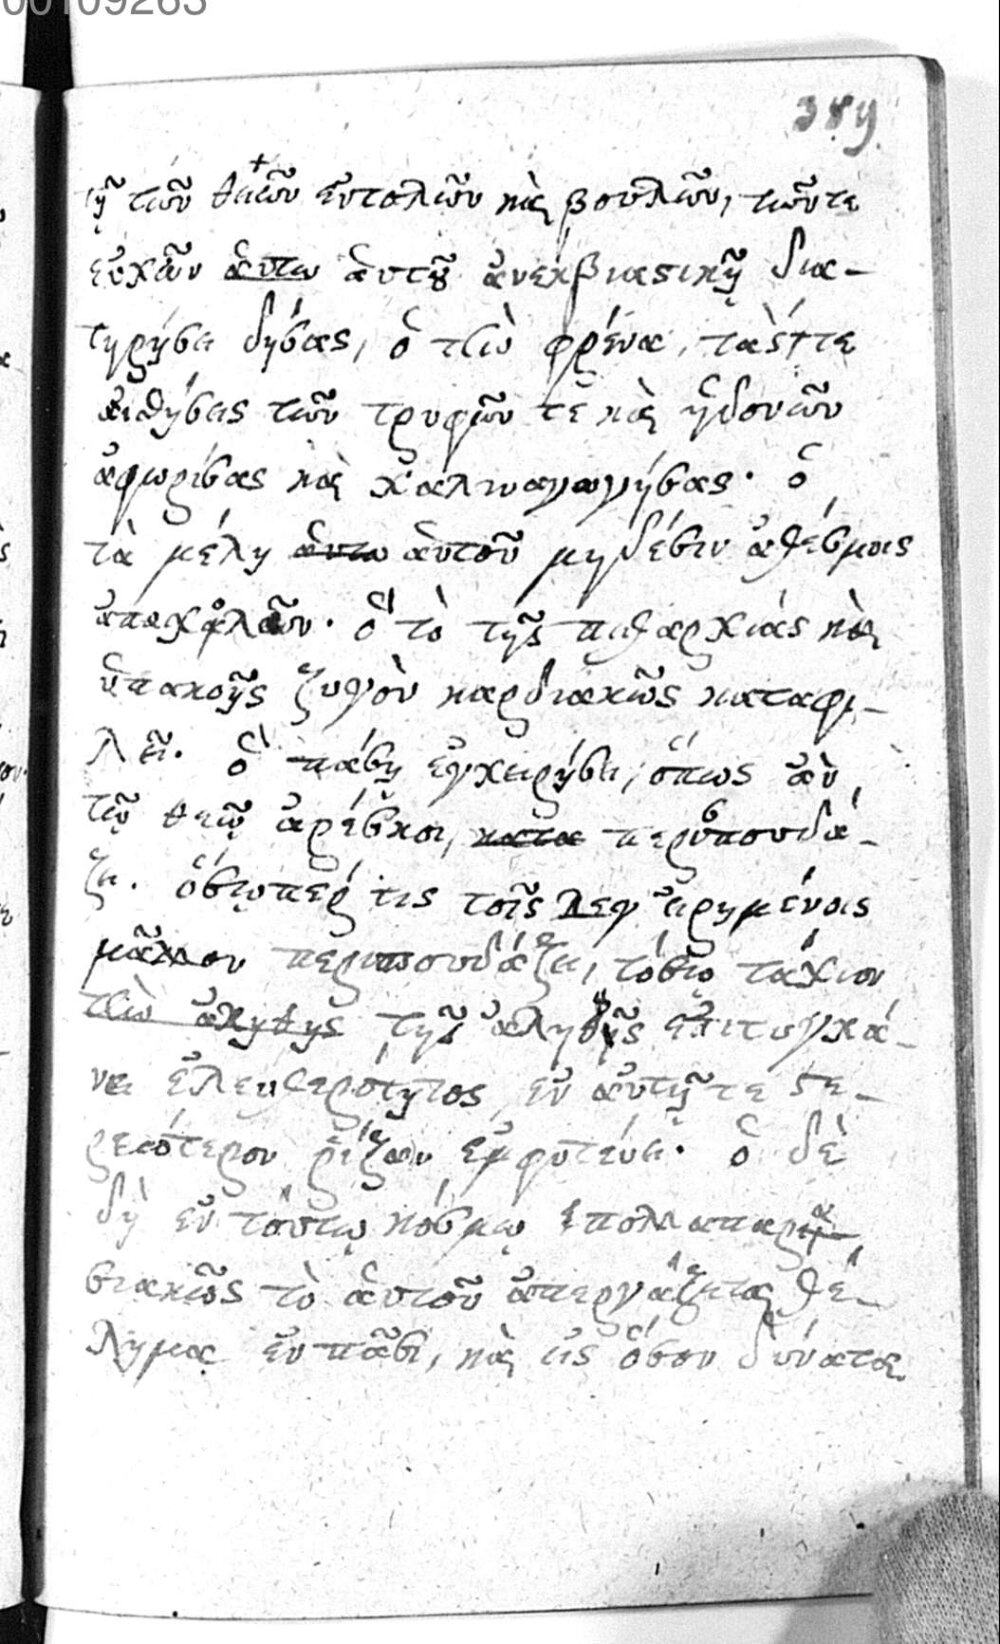 00109263
389
τῇ τῶν θείῶν ἐντολῶν καὶ βουλῶν, τῶντε
εὐχῶν ἀυτω ἀυτοῦ ἀνεκβιαστικῇ δια-
τηρήσει δήσας, ὁ τὴν φρένα, τὰς ττε
αἰσθήσεις τῶν τρυφῶν τὲ καὶ ἡδονῶν
ἀφωρίσας καὶ χαλιναγωγήσας· ὁ
τὰ μέλη ἀυτω ἀυτοῦ μηδέσιν ἀθέσμοις
ἀποχολῶν. ὁ τὸ τῆς πειθαρχιάς καὶ
ὑπακοῆς ζυγὸν καρδιακῶς καταφι-
λεῖ. ὁ πάσῃ ἐγχειρήσει, ὅπως ἂν
τῷ θεῷ ἀρέσκοι, κατα περισπουδά-
ζει. ὅσῳπερ τις τοῖς εἰρημένοις
μᾶλλον περισπουδάζει, τόσῳ τάχιον
τὴν ἀληθης τῆς ἀληθῆς ἐπιτυγχά-
νει ἐλευθερότητος, ἐν ἀυτῇ τε στε-
ρεώτερον ῥίζαν ἐμφυτεύει. ὁ δὲ
δὴ ἐν τόυτῳ κόσμῳ
σιακῶς τὸ ἀυτοῦ ἀπεργάζεται θέ-
λημα ἐν πᾶσι, καὶ εἰς ὅσον δύναται